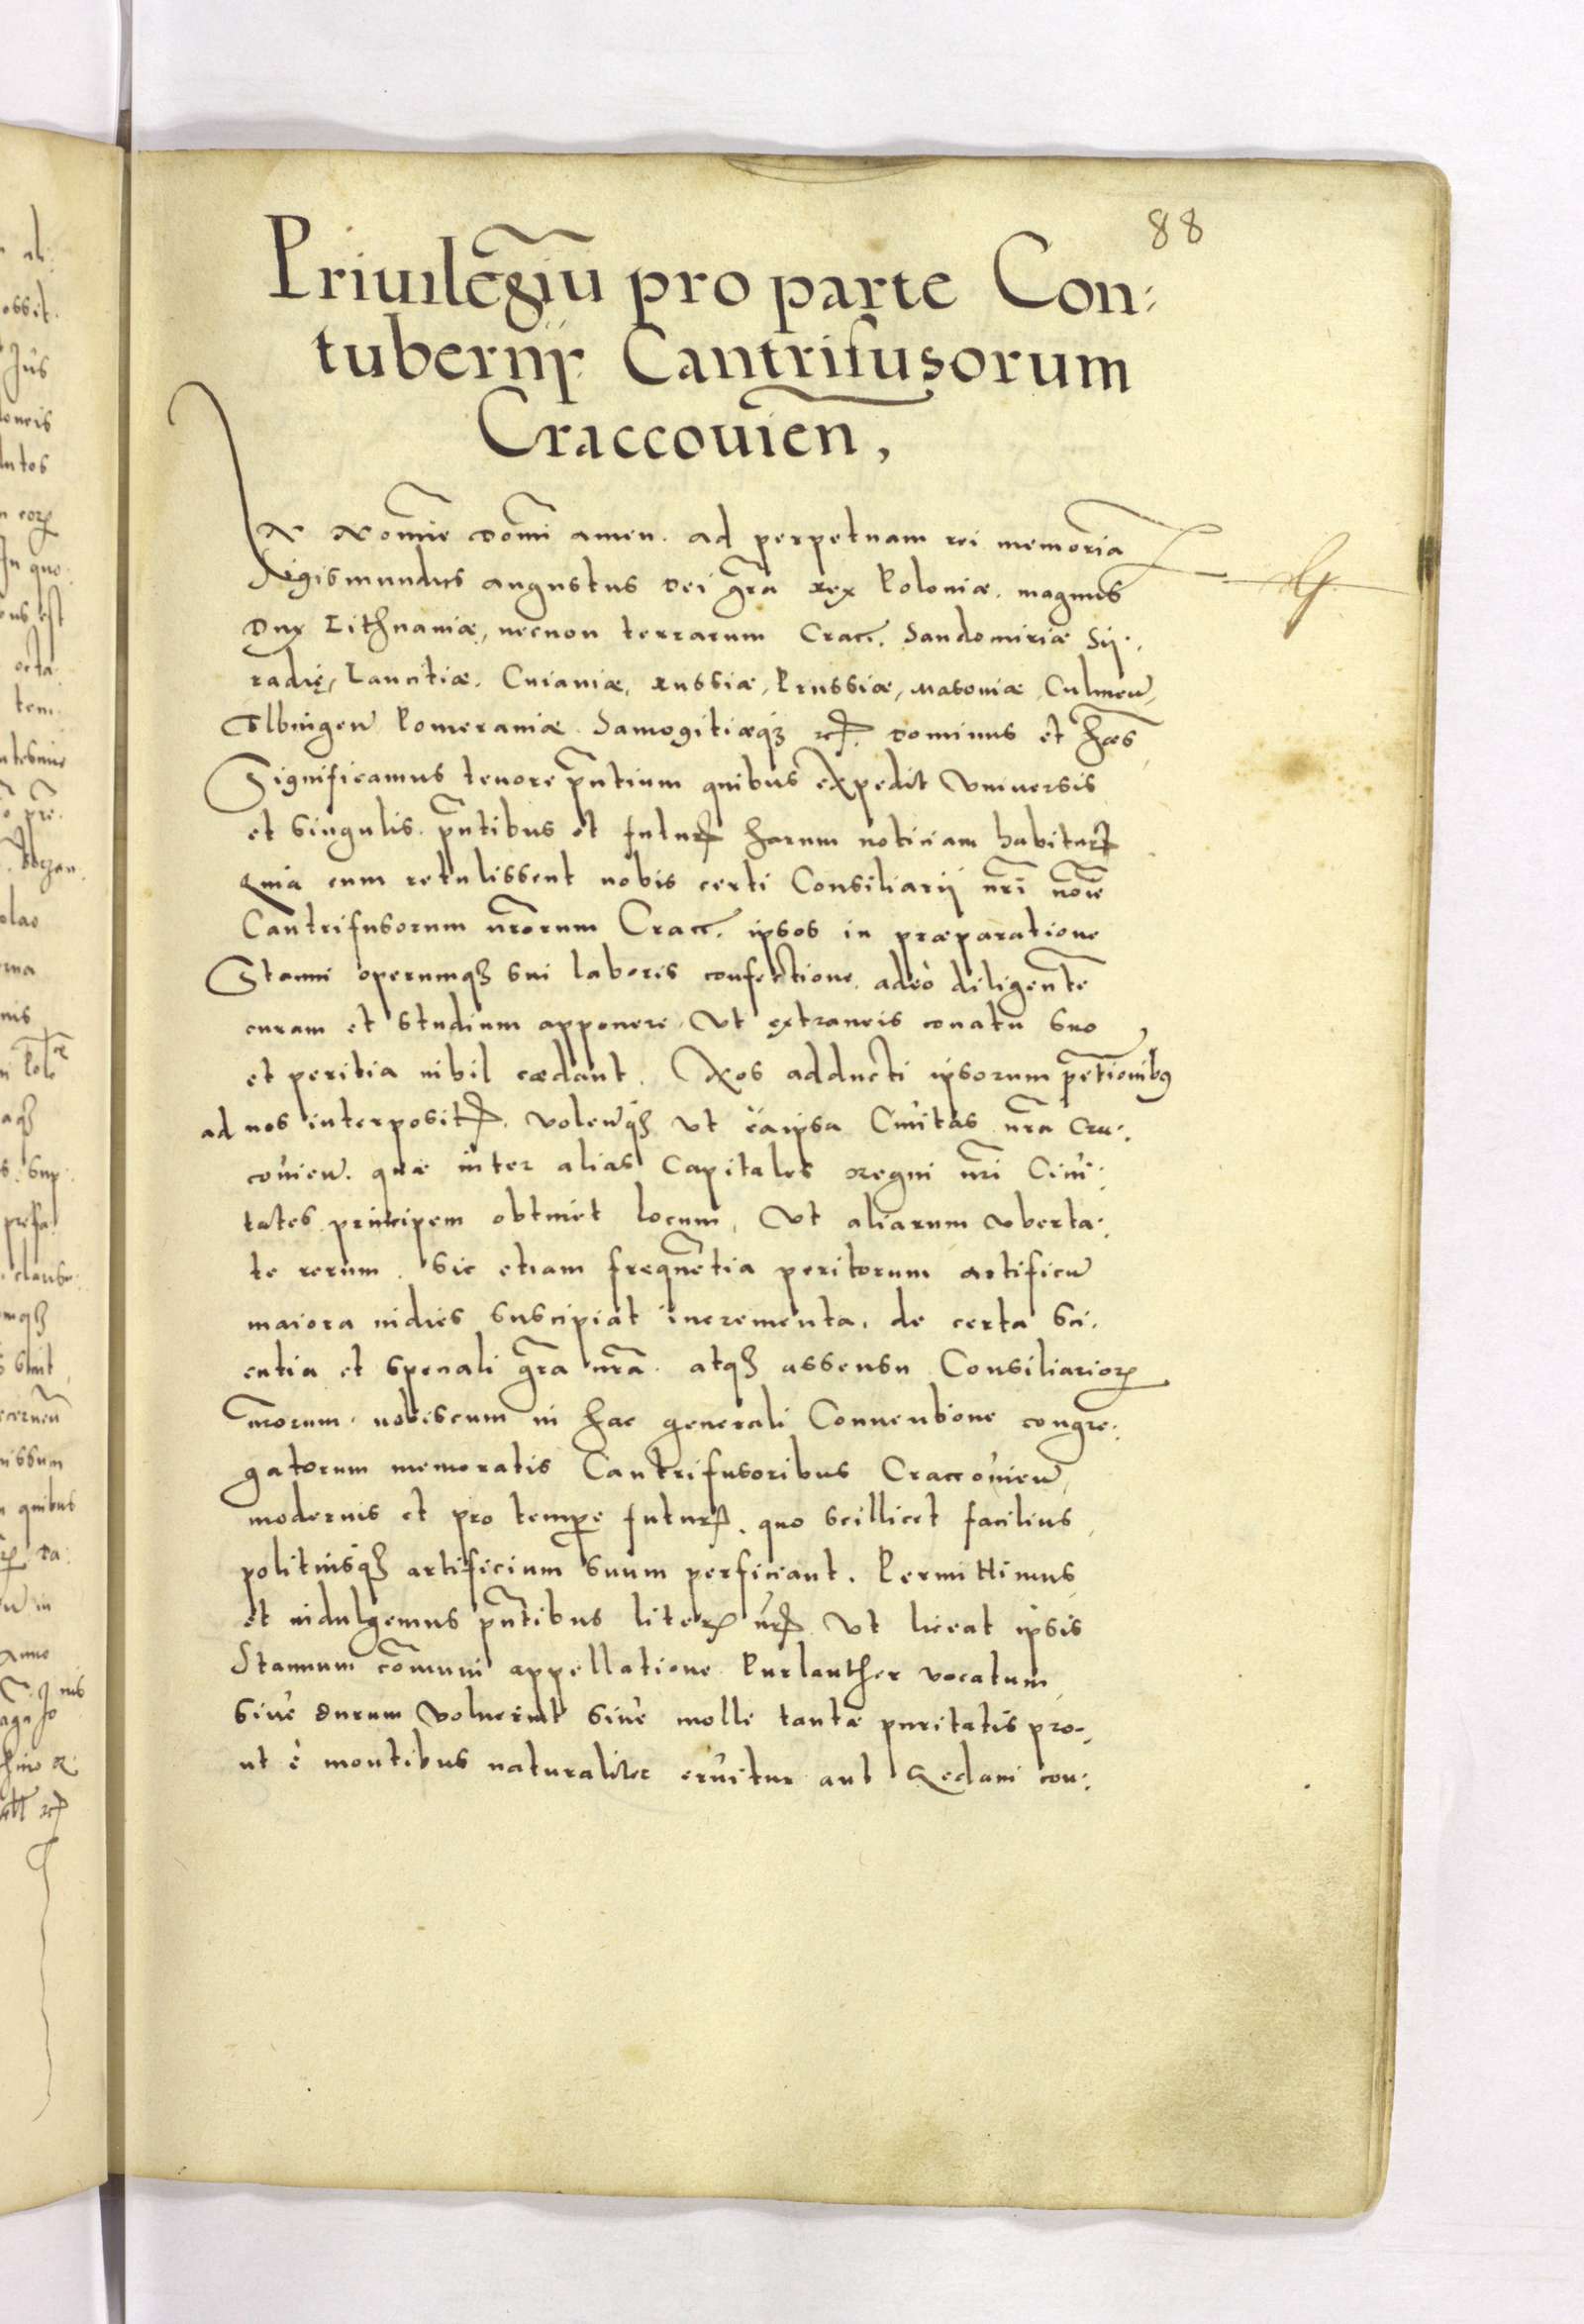 88
Priuilegiu pro parte Con:
tubernij Cantrifusorum
Craccouien,
In Nomie Domi amen. ad perpetuam rei memoria
Sigismundus augustus Dei gra rex Poloniæ, magnus
Dux Lithuaniæ, necnon terrarum Crac. Sandomiriæ Sy:
radię, Lancitiæ, Cuiauiæ, russiæ, Prussiæ, Masoniæ, Culmen,
Elbingen Pomeraniæ Samogitiæq3 rc. Dominus et hæs
Significamus tenore pntium quibus expedit Vniuersis
et singulis pntibus et futur harum noticiam habitur
Quia cum retulissent nobis certi Consiliarij nri noie
Cantrifusorum nrorum Crac. ipsos in præparatione
Stanni operumq3 sui laboris confectione, adeò diligente
curam et studium apponere, Vt extraneis conatu suo
et peritia nihil cædant. Nos adducti ipsorum petionibus
ad nos interposit, Volenq3 Vt ea ipsa Ciuitas nra Cra:
couien. quæ inter alias Capitales regni nri Ciui:
tates principem obtinet locum, Vt aliarum vberta:
te rerum. sic etiam frequentia peritorum artificu
maiora indies suscipiat incrementa, de certa sci:
entia et speciali gra nra. atq3 assensu Consiliarior
nrorum. nobiscum in hac generali Conuentione congre:
gatorum memoratis Cantrifusoribus Craccouien,
modernis et pro tempe futur, quo scillicet facilius,
politiusq3 artificium suum perficiant. Permittimus
et indulgemus pntibus liter nr Vt liceat ipsis
Stannum comuni appellatione Purlauther vocatum
siue durum Voluerint siue molle tantæ puritatis pro:
ut è montibus naturaliter eruitur aut Redani con: